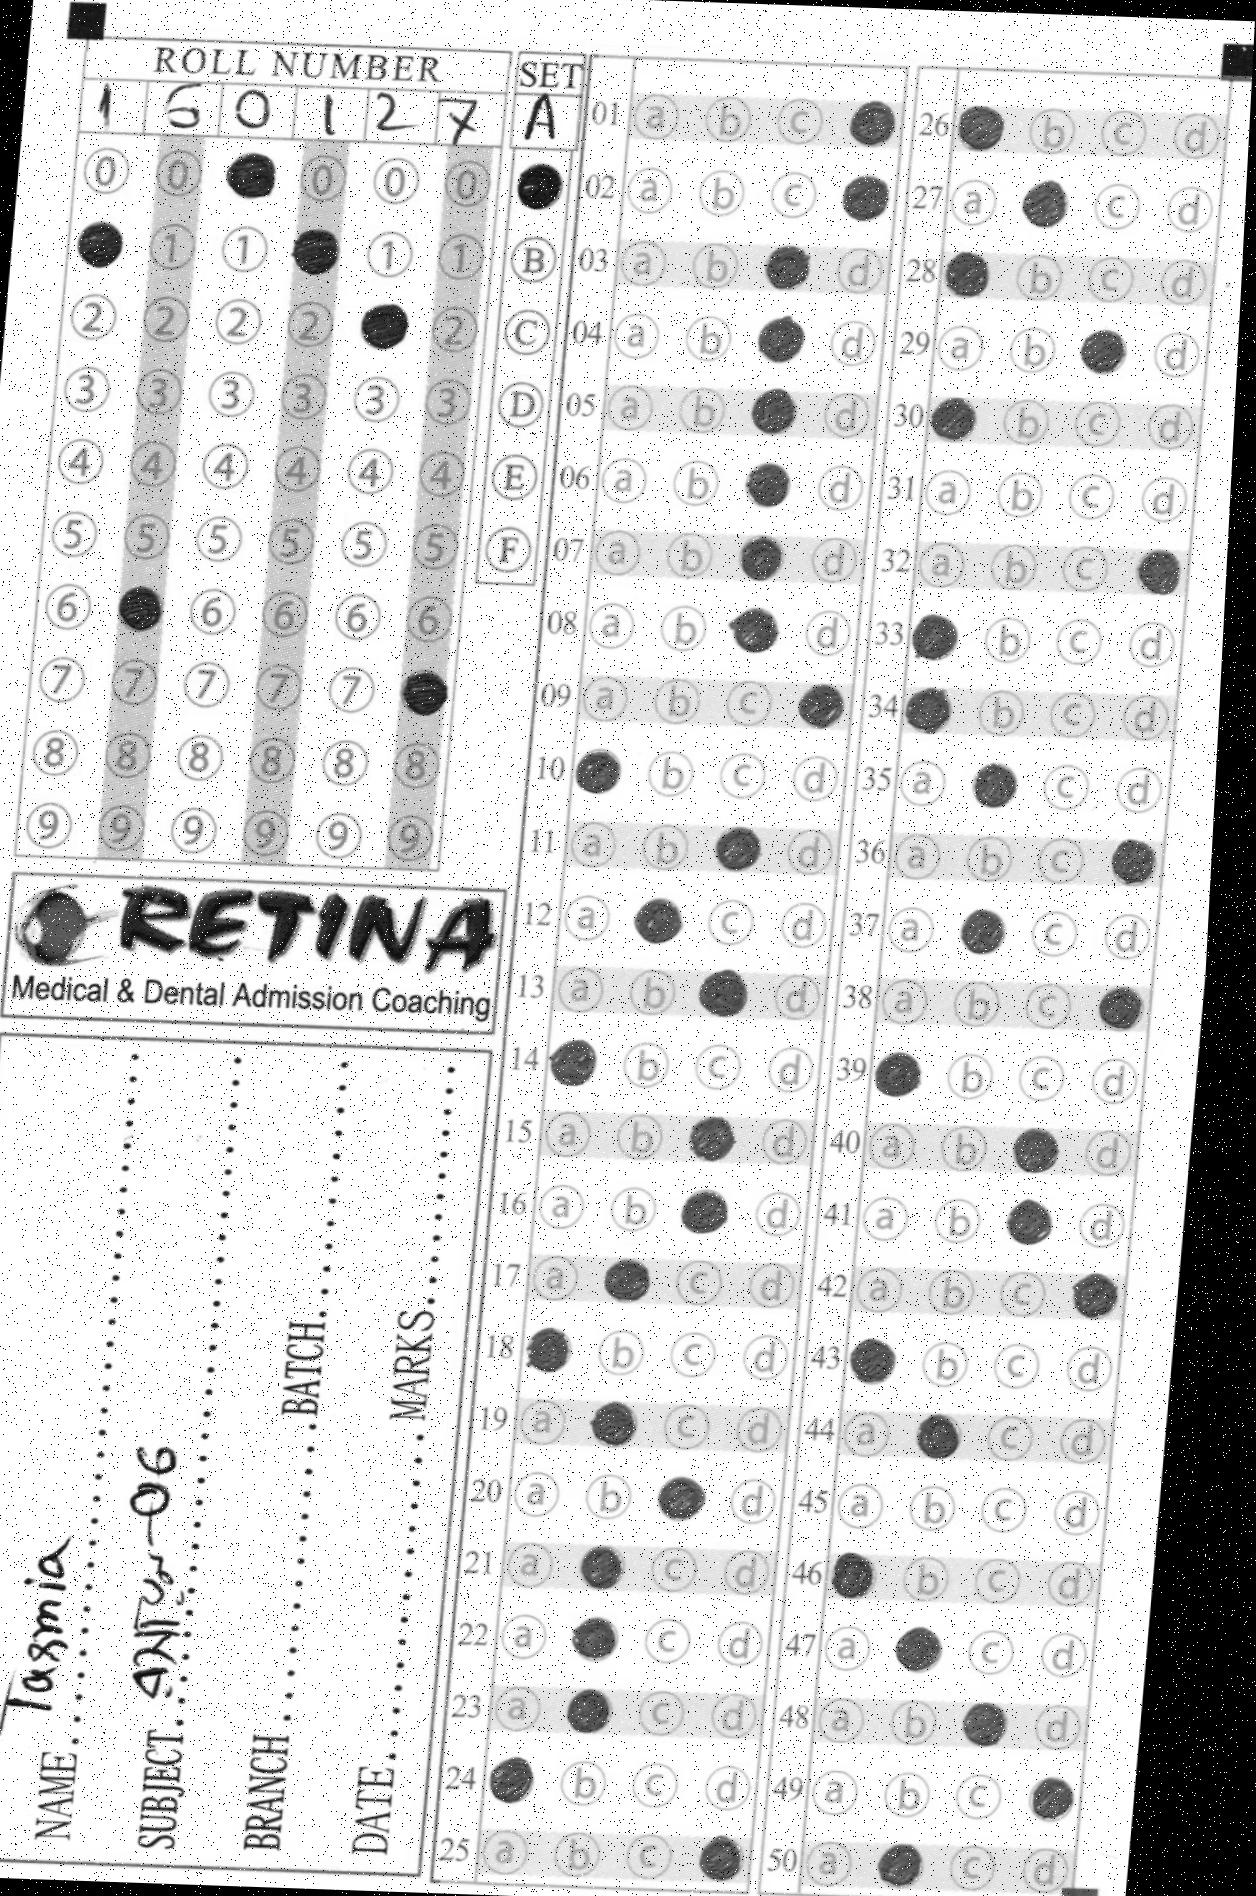 ROLL NUMBER
1 6 0 1 2 7
0 0 0 0 0
1 1 1 1
2 2 2 2 2
3 3 3 3 3 3
4 4 4 4 4 4
5 5 5 5 5 5
6 6 6 6 6
7 7 7 7 7
8 8 8 8 8 8
9 9 9 9 9 9
SET
A
B
C
D
E
F
RETINA
Medical & Dental Admission Coaching
NAME Tasmia
SUBJECT -06
BRANCH BATCH
DATE MARKS
01 a b c
02 a b c
03 a b d
04 a b d
05 a b d
06 a b d
07 a b d
08 a b d
09 a b c
10 b c d
11 a b d
12 a c d
13 a b d
14 b c d
15 a b d
16 a b d
17 a c d
18 b c d
19 a c d
20 a b d
21 a c d
22 a c d
23 a c d
24 b c d
25 a b c
26 b c d
27 a c d
28 b c d
29 a b d
30 b c d
31 a b c d
32 a b c
33 b c d
34 b c d
35 a c d
36 a b c
37 a c d
38 a b c
39 b c d
40 a b d
41 a b d
42 a b c
43 b c d
44 a c d
45 a b c d
46 b c d
47 a c d
48 a b d
49 a b c
50 a c d